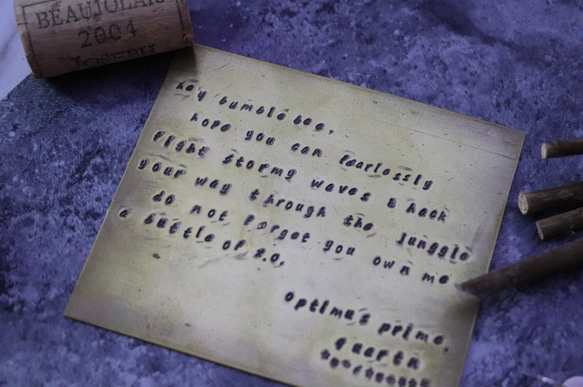 BEAUJOLAIS
2004
JOSEPH
hey bumble bee,
hope you can fearlessly
fight stormy waves & hack
your way through the junggle
do not forget you own me
a buttle of S.O,
optimus prime.